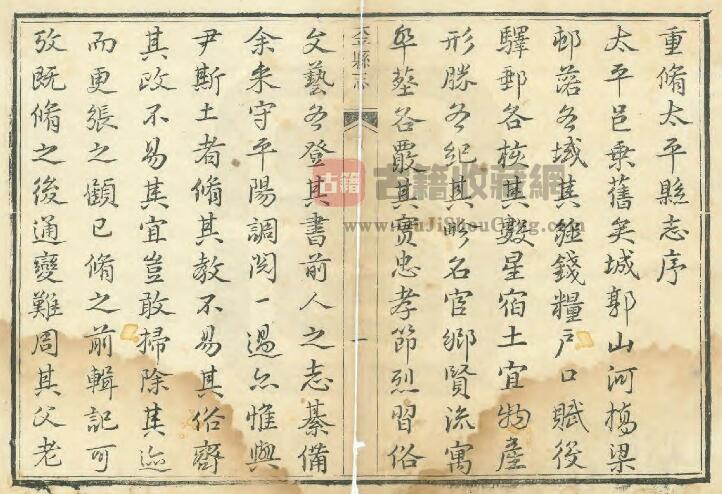 重脩太平縣志序
太平邑乗舊矣城郭山河橋梁
邨落各域其經錢糧戶口賦役
驛郵各核其數星宿土宜物產
形勝各紀其畛名宦鄉賢流寓
墓各覈其實忠孝節烈習俗
縣志
一
文藝各登其書前人之志綦備
余来守平陽調閱一過亦惟與
尹斯土者脩其教不易其俗齊
其政不易其宜豈敢掃除其迹
而更張之顧已脩之前輯記可
攷既脩之後通變難周其父老
古籍
古籍收藏網
www.GuJiShouCang.com